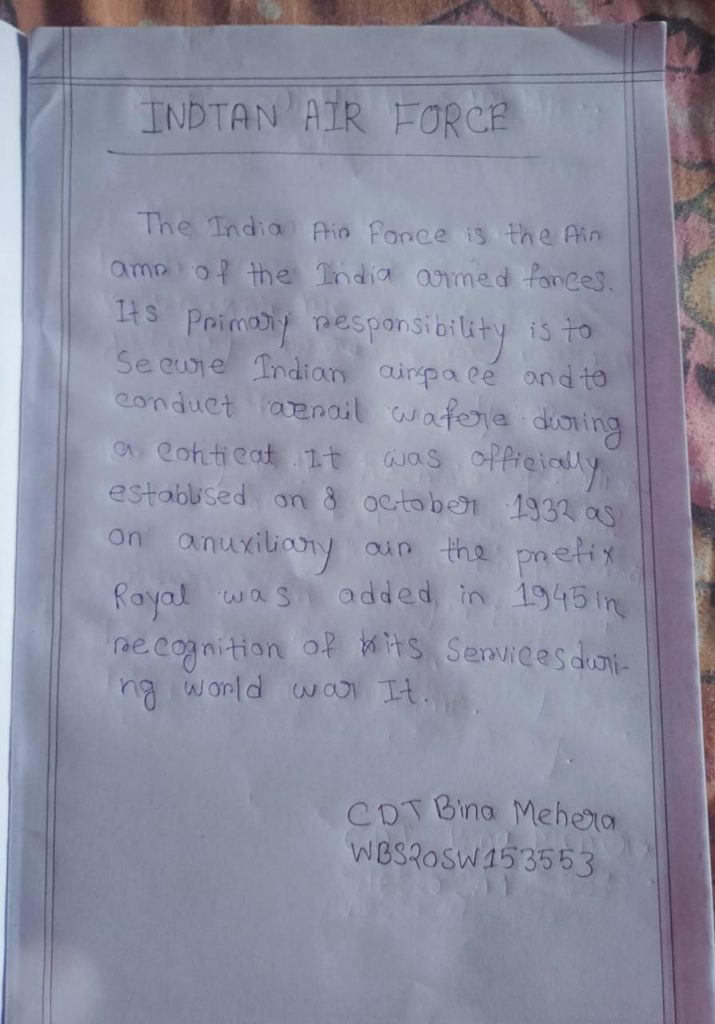 INDIAN AIR FORCE
The India Air Force is the Air
amr of the India armed forces.
Its Primary responsibility is to
Secure Indian airspace and to
conduct aerail wafere during
a conticat. It was officially
establised on 8 october 1932 as
on anuxiliary air the prefix
Royal was added in 1945 in
recognition of its Services duri-
ng world war It.
CDT Bina Mehera
WBS20SW153553